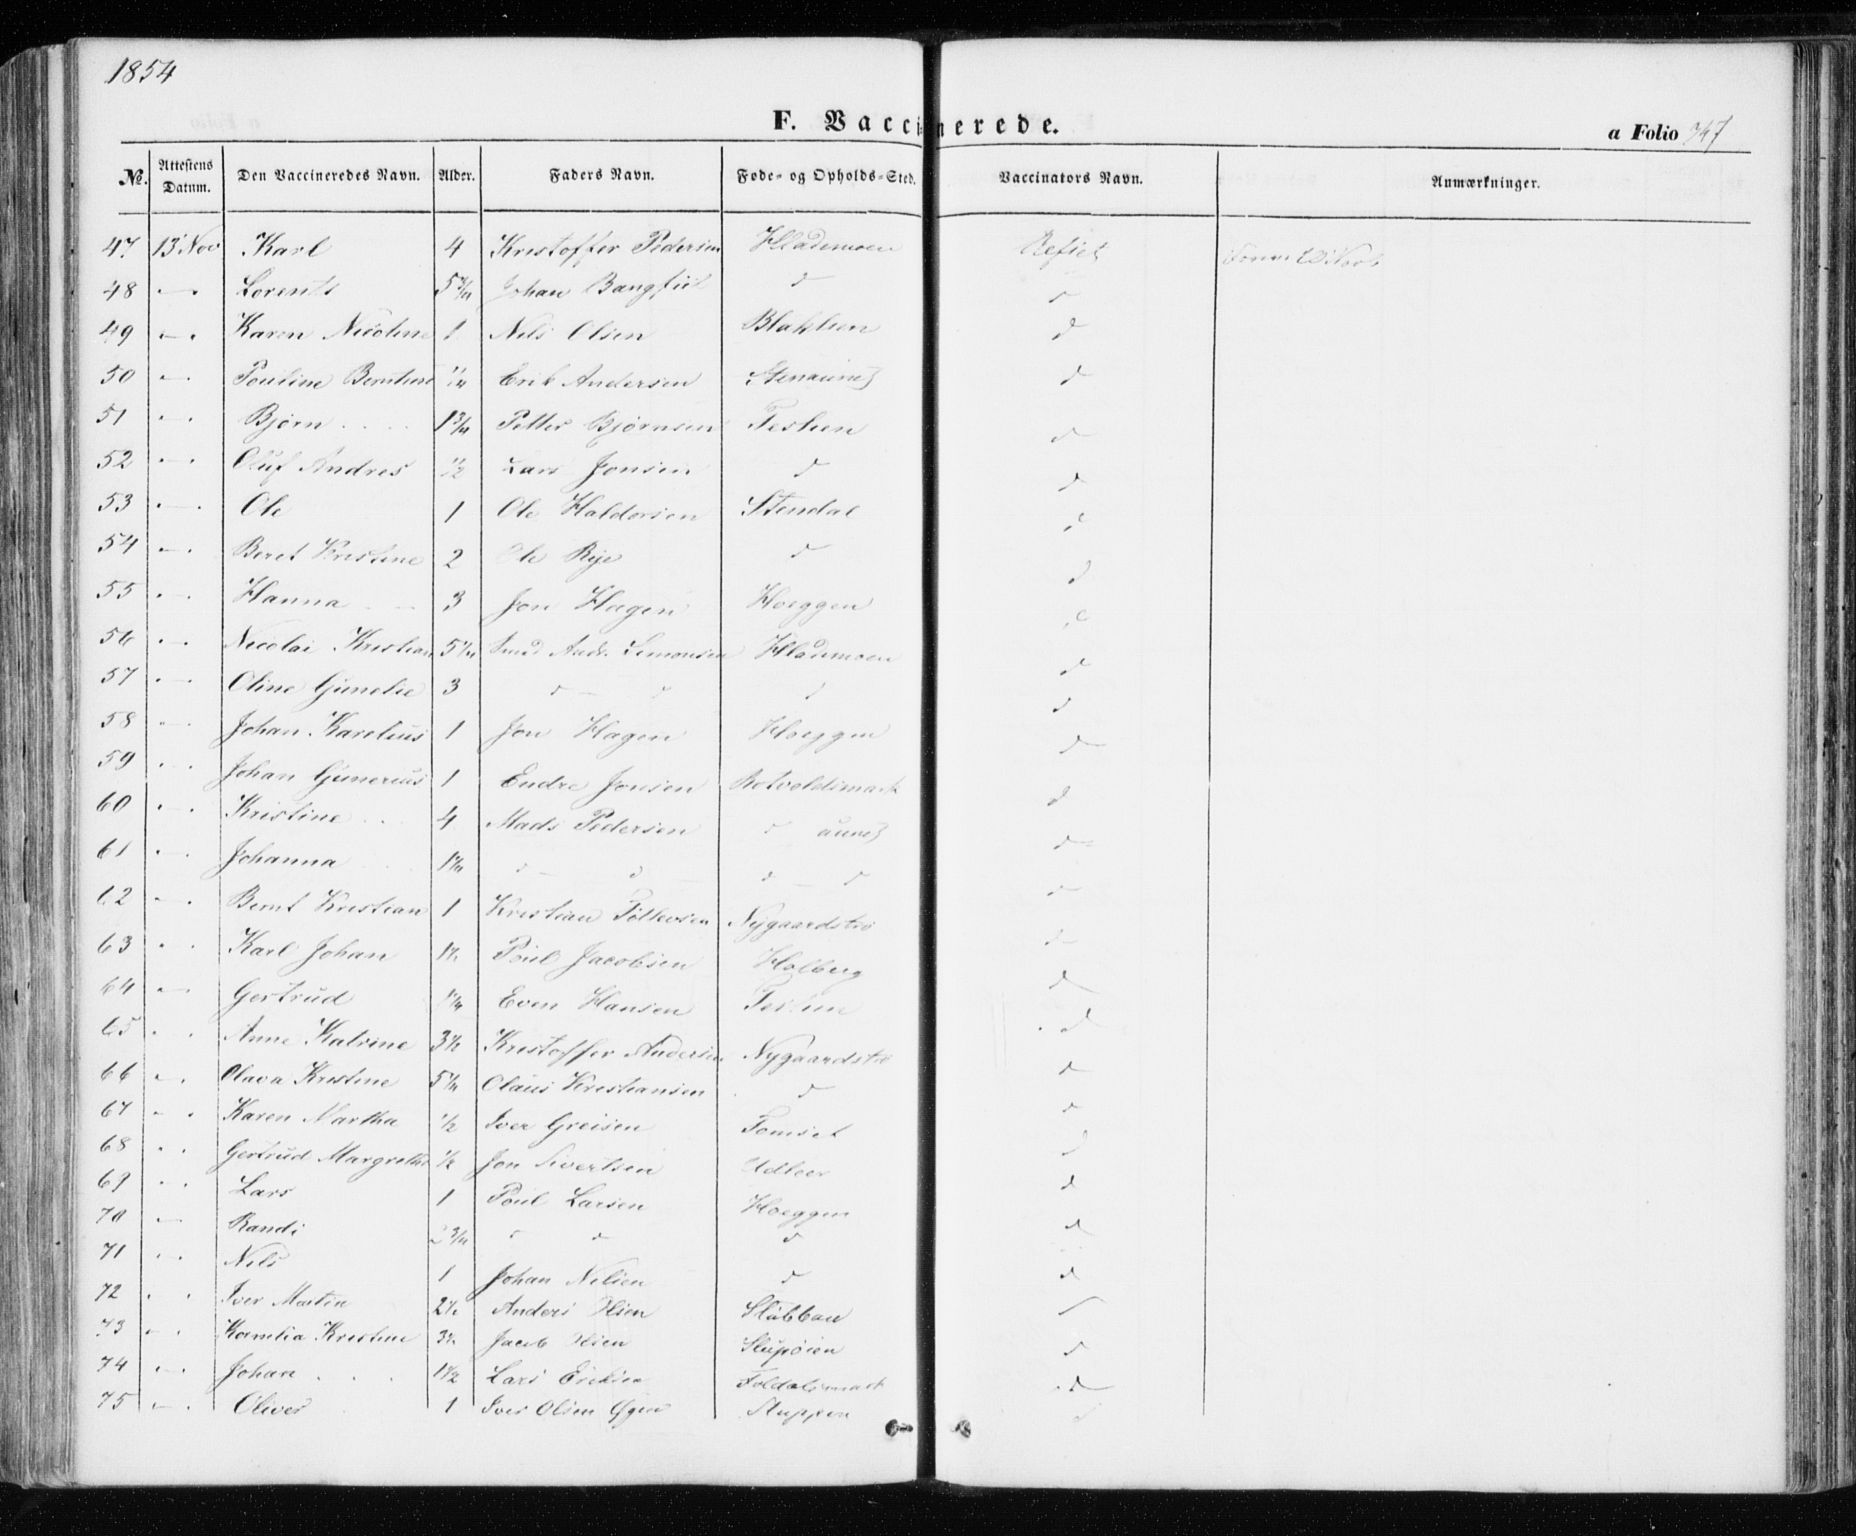 1854
F. Vaccinerede.
a Folio 347
No. Attestens Datum. Den Vaccineredes Navn. Alder. Faders Navn. Føde- og Opholds-Sted. Vaccinators Navn. Anmærkninger.
47 13 Nov Karl 4 Kristoffer Pedersen Hlademoen
48 — Lorents 5 3/4 Johan Bangfiel d d
49 — Karen Nicoline 1 Nils Olsen d
50 — Pouline 1/4 Erik Andersen d
51 — Bjørn 1 3/4 Petter Bjørnsen Festien d
52 — Oluf Andres 1/2 Lars Jonsen d d
53 — Ole 1 Ole Haldorsen Stendal d
54 — Beret Kristine 2 Ole Rije d d
55 — Hanna 3 Jon Hagen Hoeggen
56 — Nicolai Kristian 5 1/4 Andr. Simonsen Hlademoen d
57 — Oline 3 d — d d d
58 — Johan Karelius 1 Jon Hagen Hoeggen d
59 Johan Gunerius 1 Endre Jonsen Rotvoldsmark d
60 Kristine 4 Mads Pedersen d aunes d
61 — Johanna 1 1/4 d — d — d — d d
62 — Bernt Kristian 1 Kristian Nygaardstrø d
63 Karl Johan 1 1/2 Poul Jacobsen Halberg d
64 — Gertrud 1 1/4 Even Hansen d
65 Anne Katrine 3 1/2 Kristoffer Andersen Nygaardstrø d
66 — Olava Kristine 5 1/4 Claus Kristiansen d d
67 — Karen Martha 1/2 Iver Greisen Tomset d
68 Gertrud Margrethe 1/2 Jon Sivertsen Udleer d
69 Lars 1 Poul Larsen Hoeggen d
70 — Randi 2 3/4 d d d d
71 Nils 1 Johan Nilsen d d
72 Iver Martin 2 1/2 Anders Olsen Stubban
73 Kornelia Kristine 3 1/2 Jacob Olsen d
74 — Johan 1 1/2 Lars Eriksen d
75 — Oliver 1 Iver Olsen Øgen Sluppen d